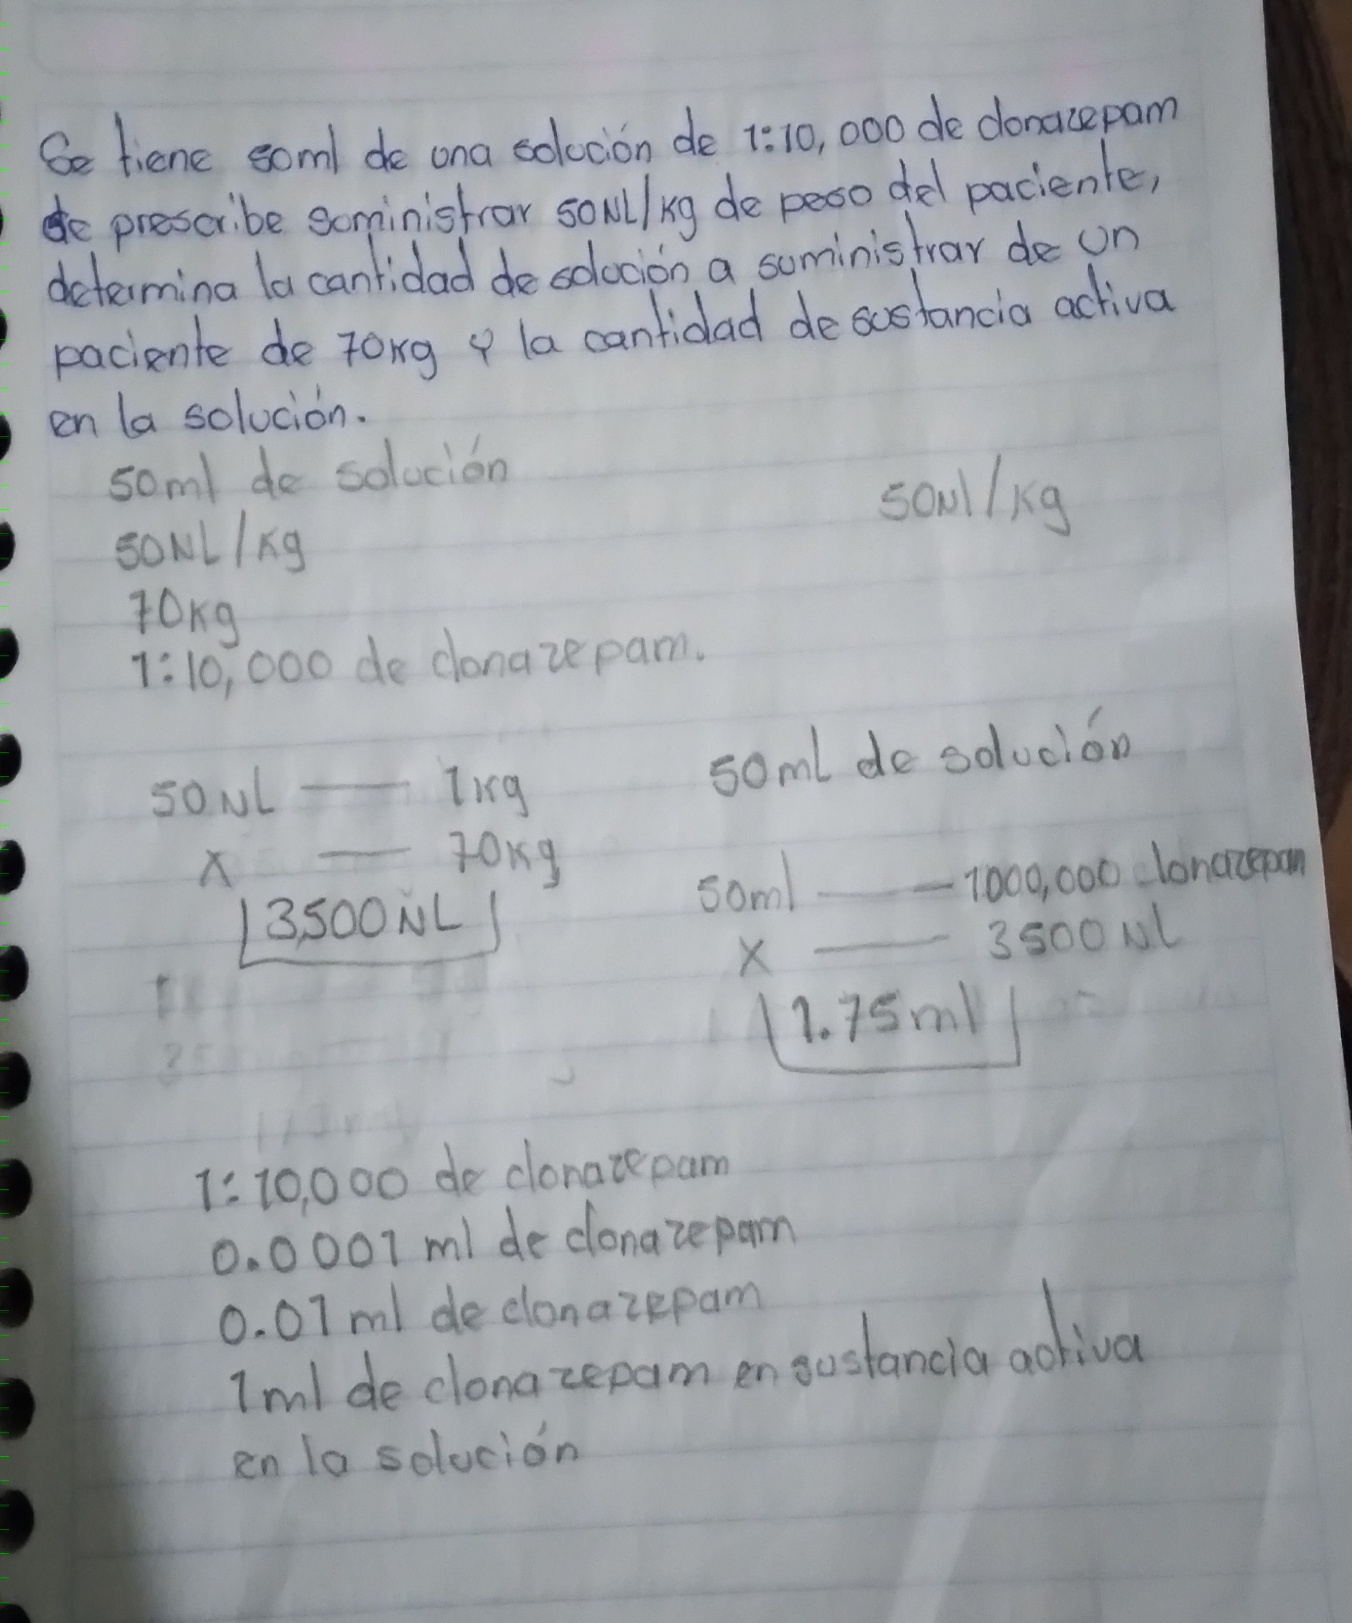 Se tiene 50ml de una solución de 1:10,000 de clonacepam
de prescribe suministrar 50NL/Kg de peso del paciente,
determina la cantidad de solución a suministrar de un
paciente de 70Kg y la cantidad de sustancia activa
en la solución.
50ml de solución
50Nl/Kg
50NL/Kg
70Kg
1:10,000 de clonazepam.
50ml de solución
50NL — 1Kg
X — 70Kg
3,500NL
50ml — 1000,000 clonazepan
X — 3500NL
1.75ml
1:10,000 de clonazepam
0.0001 ml de clonazepam
0.01 ml de clonazepam
1ml de clonazepam en sustancia activa
en la solución